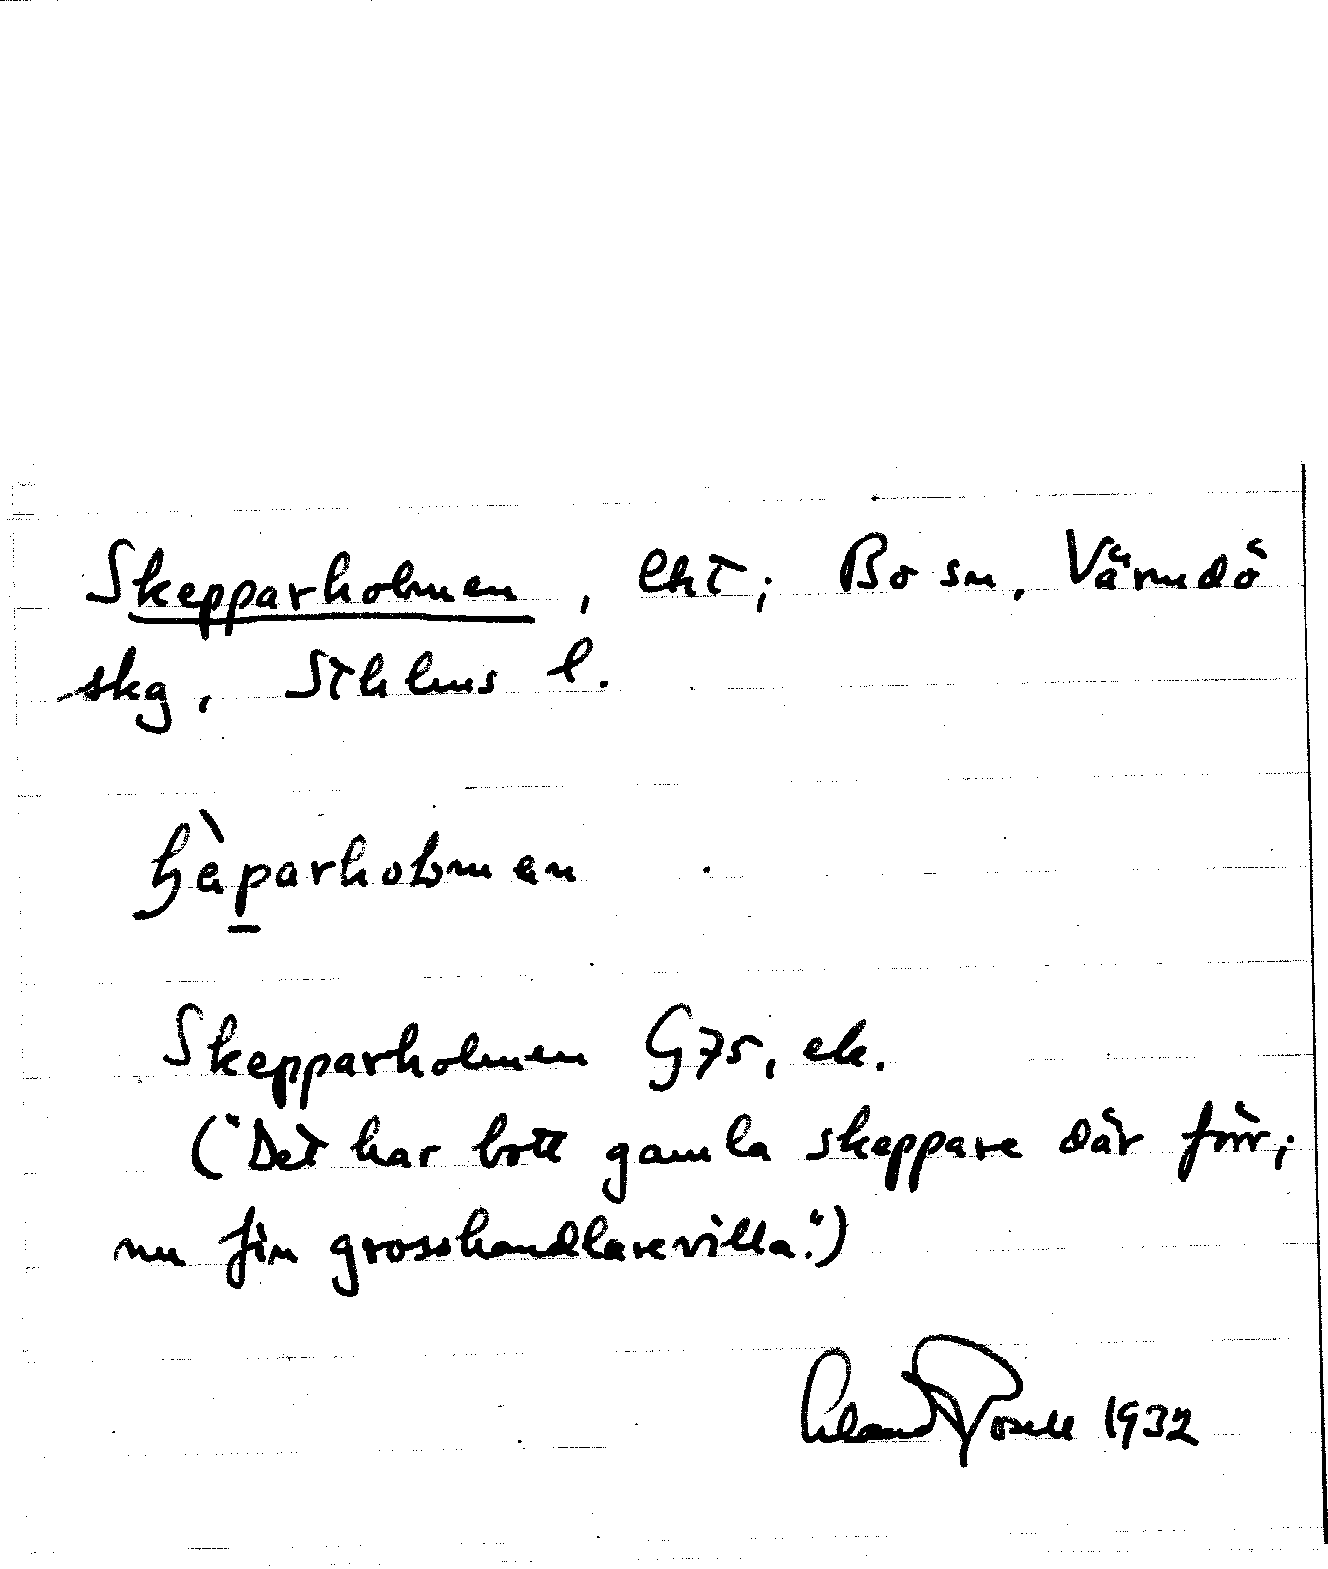 Skepparholmen, lht; Bo sn, Värmdö
skg, Sthlms l.
ɧὲparholmen
Skepparholmen G75, ek.
("Det har bott gamla skeppare där förr;
nu fin grosshandlarevilla.")
1932